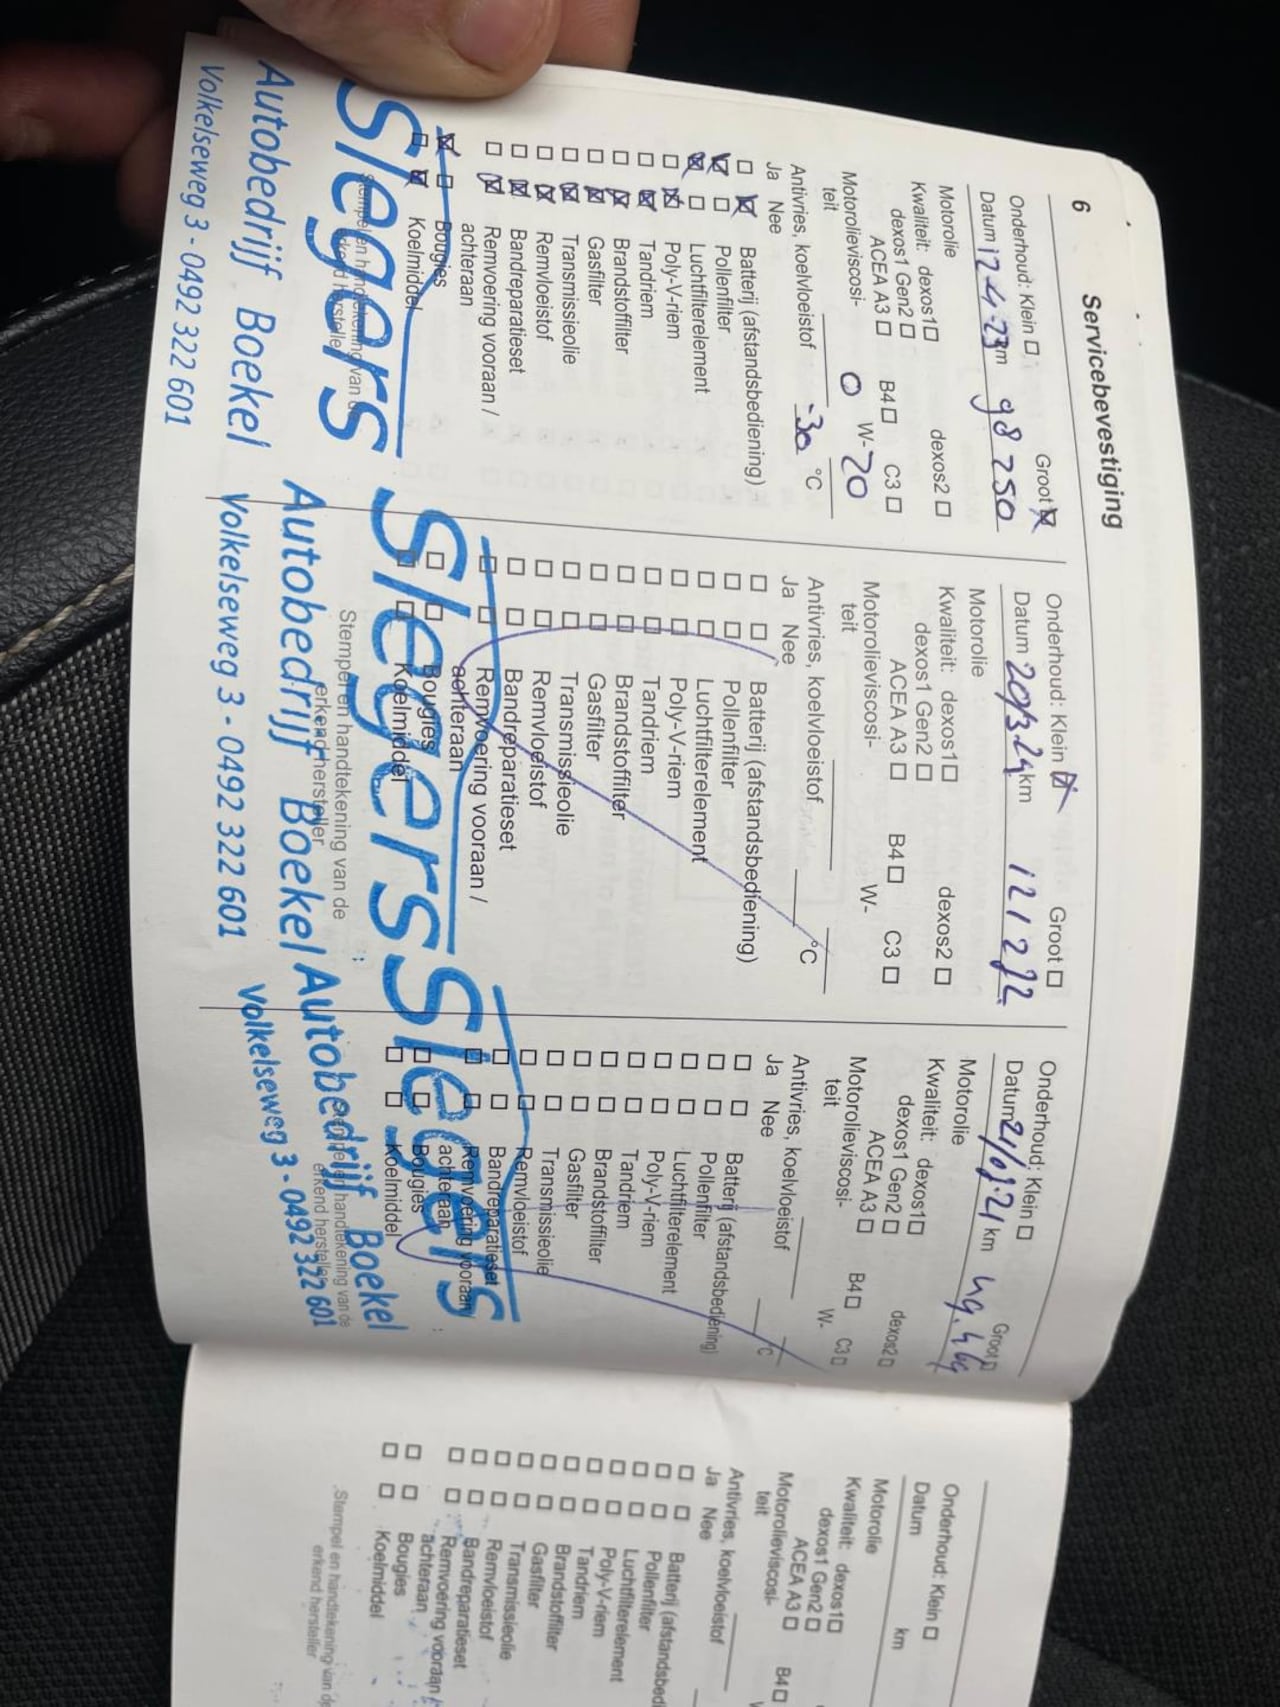 6 Servicebevestiging
Onderhoud: Klein □ Groot ☒
Datum 12-4-23 km 98 250
Motorolie
Kwaliteit: dexos1 □ dexos2 □
dexos1 Gen2 □
ACEA A3 □ B4 □ C3 □
Motorolieviscosi- 0 W- 20
teit
Antivries, koelvloeistof -30 °C
Ja Nee
□ ☒ Batterij (afstandsbediening)
☒ □ Pollenfilter
☒ □ Luchtfilterelement
□ ☒ Poly-V-riem
□ ☒ Tandriem
□ ☒ Brandstoffilter
□ ☒ Gasfilter
□ ☒ Transmissieolie
□ ☒ Remvloeistof
□ ☒ Bandreparatieset
□ ☒ Remvoering vooraan /
achteraan
☒ □ Bougies
□ ☒ Koelmiddel
Stempel en handtekening van de
erkend hersteller
Slegers
Autobedrijf Boekel
Volkelseweg 3 - 0492 322 601
Onderhoud: Klein ☒ Groot □
Datum 20/3.24 km 121272
Motorolie
Kwaliteit: dexos1 □ dexos2 □
dexos1 Gen2 □
ACEA A3 □ B4 □ C3 □
Motorolieviscosi- W-
teit
Antivries, koelvloeistof °C
Ja Nee
□ □ Batterij (afstandsbediening)
□ □ Pollenfilter
□ □ Luchtfilterelement
□ □ Poly-V-riem
□ □ Tandriem
□ □ Brandstoffilter
□ □ Gasfilter
□ □ Transmissieolie
□ □ Remvloeistof
□ □ Bandreparatieset
□ □ Remvoering vooraan /
achteraan
□ □ Bougies
□ □ Koelmiddel
Stempel en handtekening van de
erkend hersteller
Slegers
Autobedrijf Boekel
Volkelseweg 3 - 0492 322 601
Onderhoud: Klein □ Groot □
Datum km
Motorolie
Kwaliteit: dexos1 □ dexos2 □
dexos1 Gen2 □
ACEA A3 □ B4 □ C3 □
Motorolieviscosi- W-
teit
Antivries, koelvloeistof °C
Ja Nee
□ □ Batterij (afstandsbediening)
□ □ Pollenfilter
□ □ Luchtfilterelement
□ □ Poly-V-riem
□ □ Tandriem
□ □ Brandstoffilter
□ □ Gasfilter
□ □ Transmissieolie
□ □ Remvloeistof
□ □ Bandreparatieset
□ □ Remvoering vooraan
achteraan
□ □ Bougies
□ □ Koelmiddel
Stempel en handtekening van de
erkend hersteller
Slegers
Autobedrijf Boekel
Volkelseweg 3 - 0492 322 601
Onderhoud: Klein □
Datum km
Motorolie
Kwaliteit: dexos1 □
dexos1 Gen2 □
ACEA A3 □ B4 □
Motorolieviscosi-
teit
Antivries, koelvloeistof
Ja Nee
□ □ Batterij (afstandsbedi
□ □ Pollenfilter
□ □ Luchtfilterelement
□ □ Poly-V-riem
□ □ Tandriem
□ □ Brandstoffilter
□ □ Gasfilter
□ □ Transmissieolie
□ □ Remvloeistof
□ □ Bandreparatieset
□ □ Remvoering vooraan
achteraan
□ □ Bougies
□ □ Koelmiddel
Stempel en handtekening van de
erkend hersteller